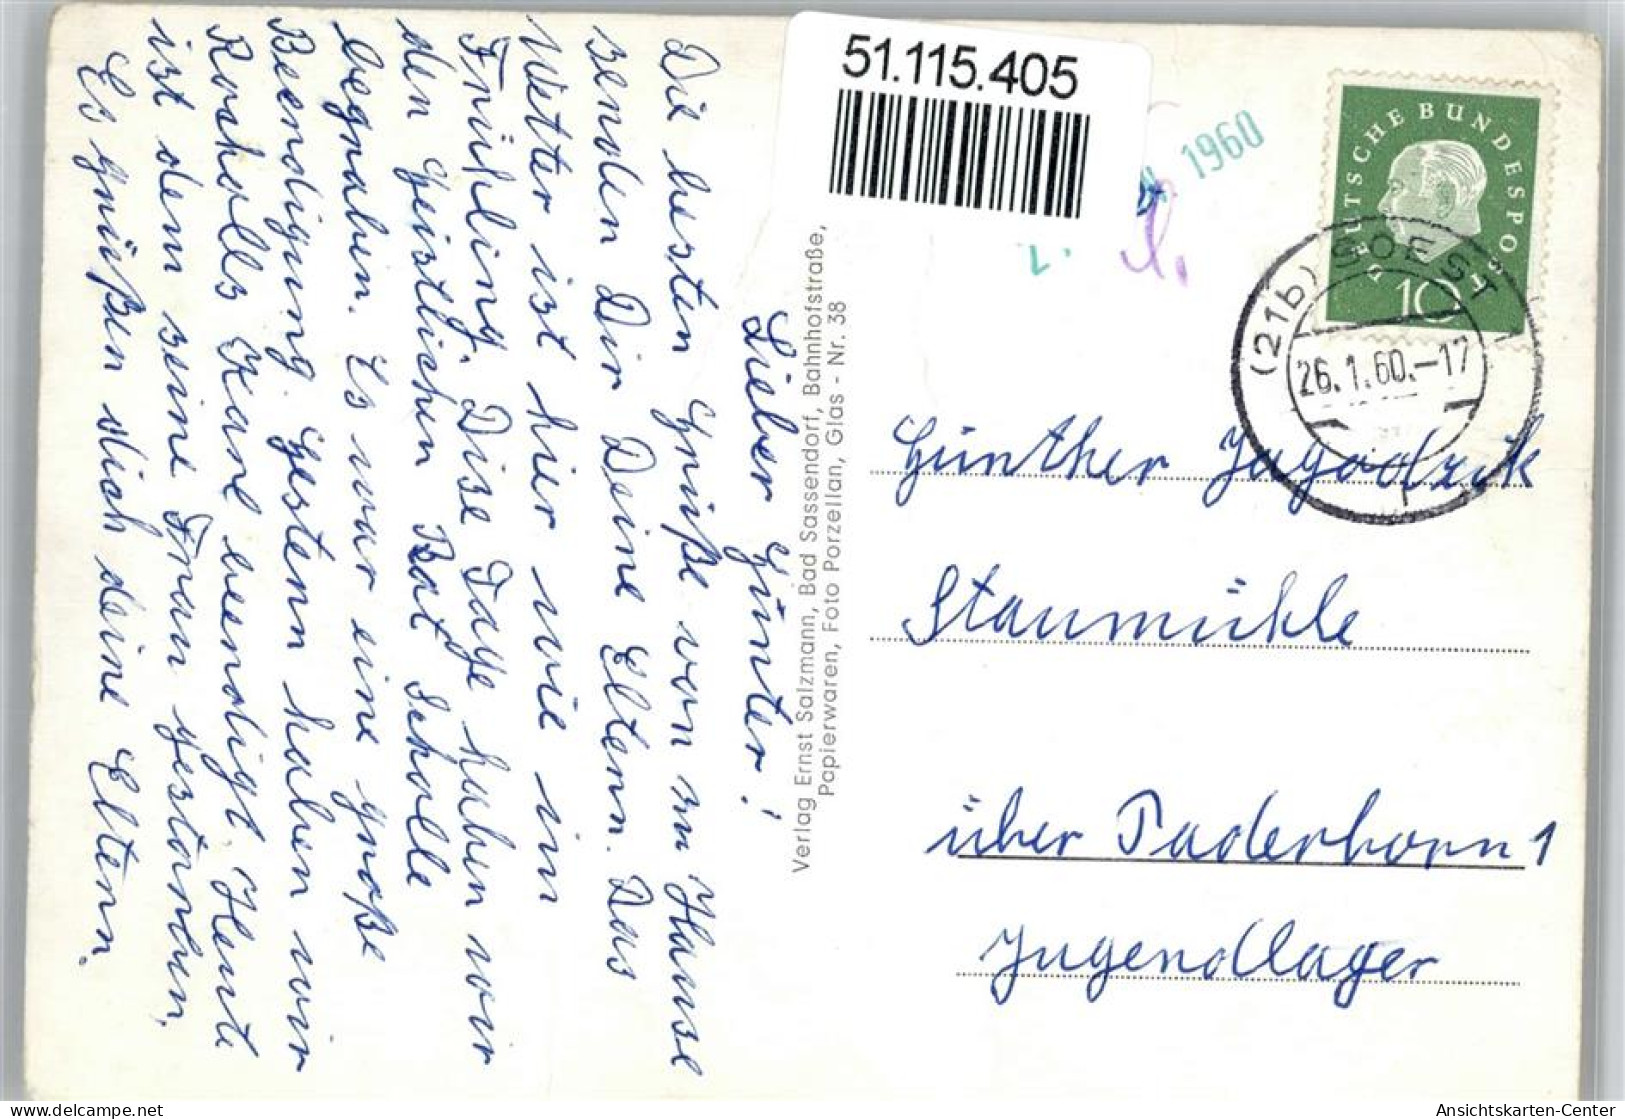 51.115.405
1960
DEUTSCHE BUNDESPOST
10
(21b) SOEST
26.1.60.-17
Lieber Günter!
Die besten Grüße von zu Hause
senden Dir Deine Eltern. Das
Wetter ist hier wie im
Frühling. Dise Tage haben wir
den Geistlichen Rat Scholle
begraben. Es war eine große
Beerdigung. Gestern haben wir
Karl beerdigt. Heute
ist dem seine Frau gestorben.
Es grüßen dich deine Eltern.
Verlag Ernst Salzmann, Bad Sassendorf, Bahnhofstraße,
Papierwaren, Foto Porzellan, Glas - Nr. 38
Günther Jagodzik
Staumühle
über Paderborn 1
Jugendlager
Ansichtskarten-Center